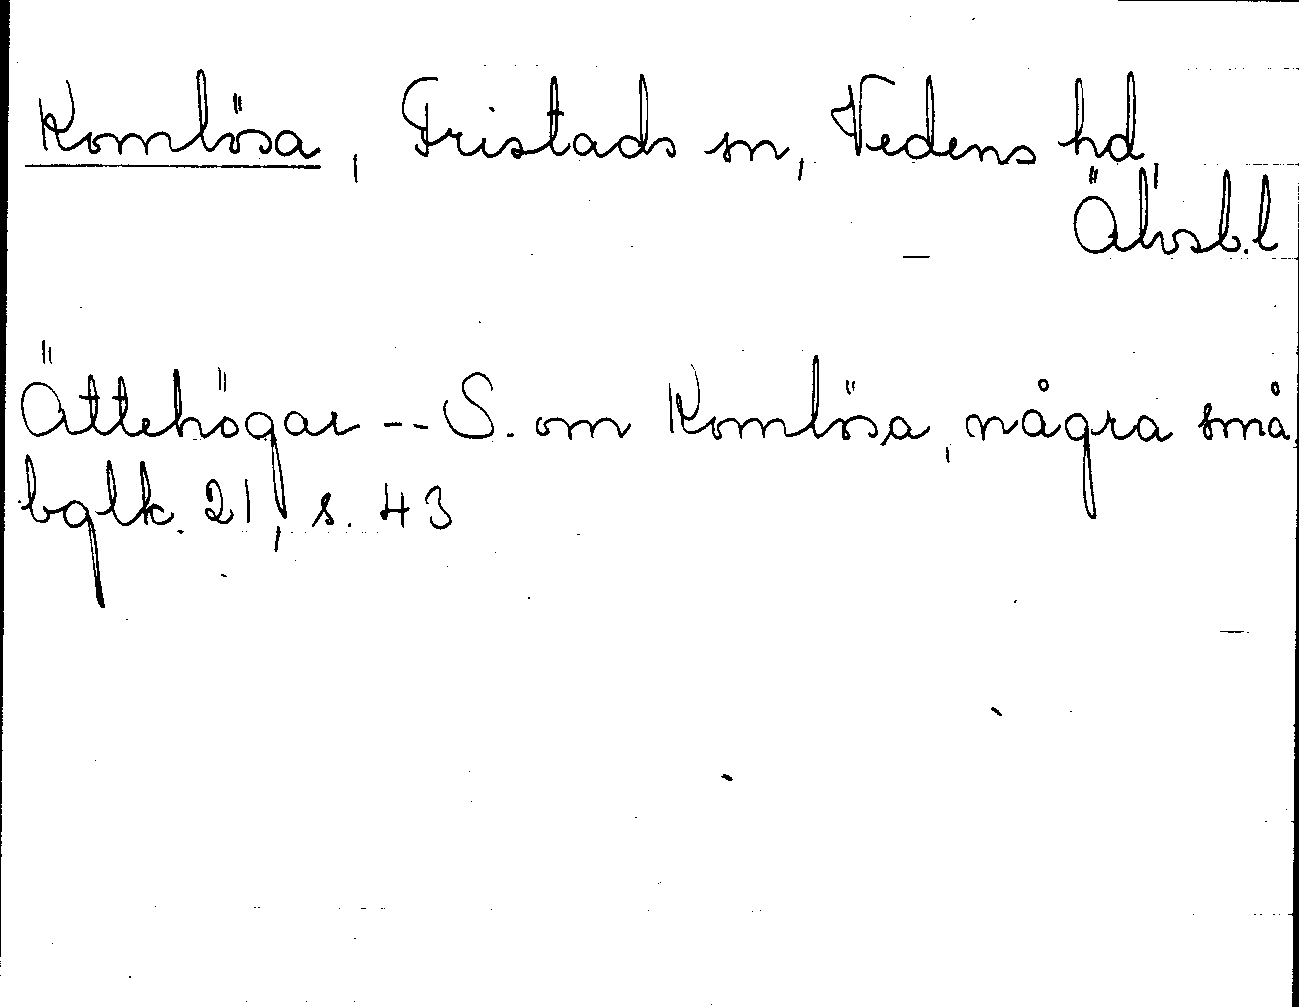 Komlösa, Fristads sn, Vedens hd,
Älvsb.l
Ättehögar -- S. om Komlösa, några små.
bglk. 21, s. 43